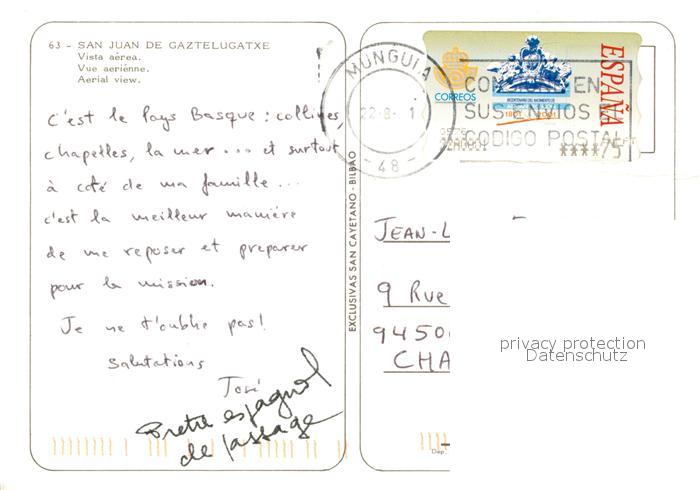 63 - SAN JUAN DE GAZTELUGATXE
Vista aérea.
Vue aeriènne.
Aerial view.
C'est le Pays Basque : collines,
chapelles, la mer ... et surtout
à côté de ma famille ...
c'est la meilleur manière
de me reposer et preparer
pour la mission.
Je ne t'oublie pas!
Salutations
José
Pretre espagnol
de passage
EXCLUSIVAS SAN CAYETANO - BILBAO
MUNGUIA
22-8- 1
- 48 -
CORREOS
ESPAÑA
EN
SUS ENVIOS
CODIGO POSTAL
****75 PT
JEAN-L
9 Rue
9450
CHA
privacy protection
Datenschutz
Dep.